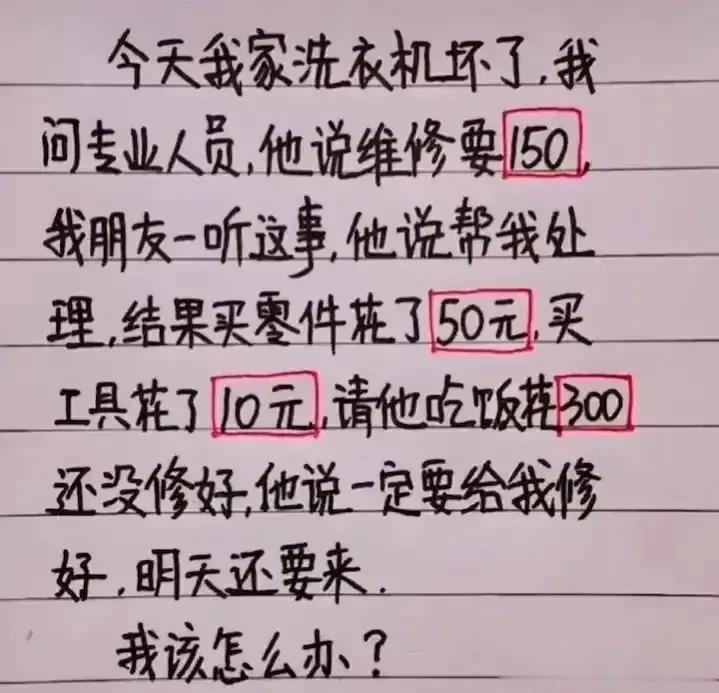 今天我家洗衣机坏了,我
问专业人员,他说维修要150,
我朋友一听这事,他说帮我处
理,结果买零件花了50元,买
工具花了10元,请他吃饭花300
还没修好,他说一定要给我修
好,明天还要来.
我该怎么办?